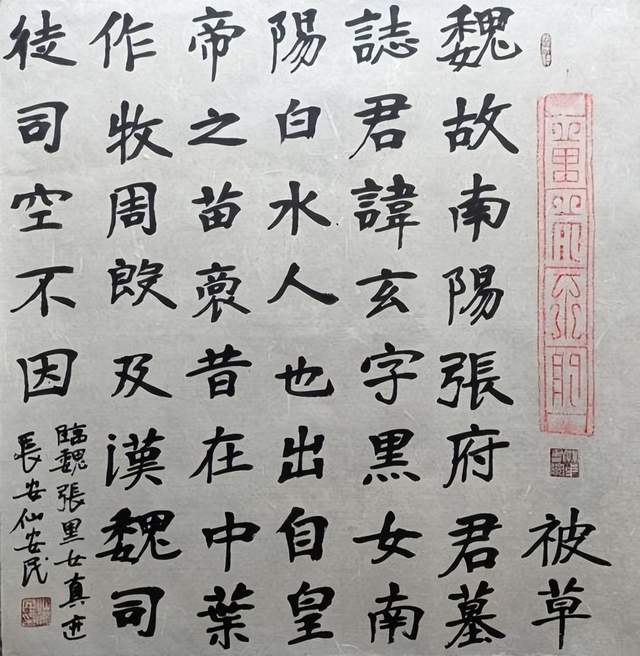 被草
魏故南陽張府君墓
誌君諱玄字黑女南
陽白水人也出自皇
帝之苗裔昔在中葉
作牧周殷及漢魏司
徒司空不因
臨魏張黑女真迹
長安仙安民